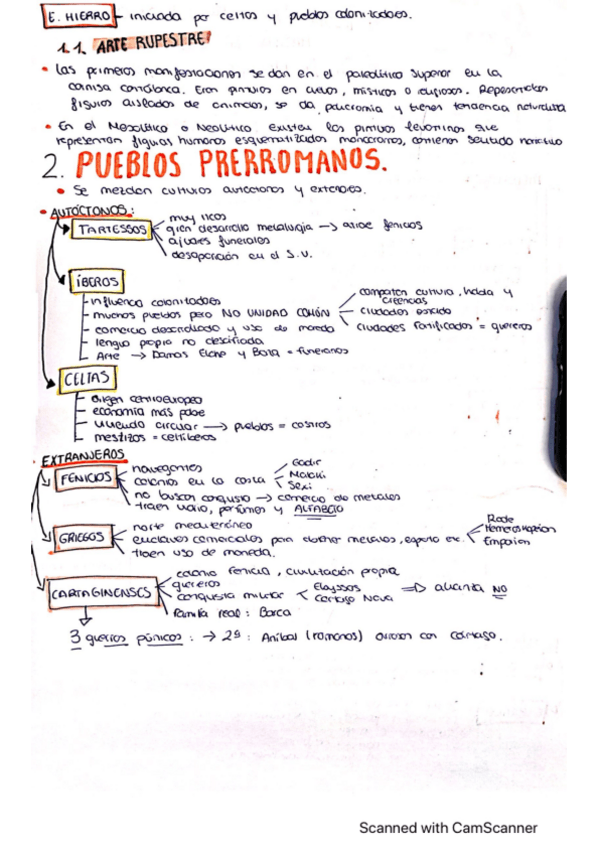 E. HIERRO - iniciada por celtas y pueblos colonizadores.
1.1. ARTE RUPESTRE:
• Las primeras manifestaciones se dan en el paleolítico superior en la
cornisa cantábrica. Eran pinturas en cuevas, místicas o religiosas. Representan
figuras aisladas de animales, se da policromía y tienen tendencia naturalista
• En el Mesolítico o Neolítico existen las pinturas levantinas que
representan figuras humanas esquematizadas monocromas, contienen sentido narrativo
2. PUEBLOS PRERROMANOS.
• Se mezclan culturas autóctonas y exteriores.
• AUTÓCTONOS:
TARTESSOS
muy ricos
gran desarrollo metalurgia → atrae fenicios
ajuares funerales
desaparición en el S.V.
ÍBEROS
influencia colonizadores
muchos pueblos pero NO UNIDAD COMÚN
comparten cultura, habla y
creencias
ciudades estado
ciudades fortificadas = guerreros
comercio desarrollado y uso de moneda
lengua propia no descifrada
Arte → Damas Elche y Baza = funerarias
CELTAS
origen centroeuropeo
economía más pobre
vivienda circular → pueblos = castros
mestizos = celtíberos
EXTRANJEROS
FENICIOS
navegantes
colonias en la costa
Gadir
Malaki
Sexi
no buscan conquista → comercio de metales
traen vidrio, perfumes y ALFABETO
GRIEGOS
norte mediterráneo
enclaves comerciales para obtener metales, esparto etc.
Rode
Hemeroskopeion
Emporion
traen uso de moneda.
CARTAGINENSES
colonia fenicia, civilización propia
guerreros
conquista militar
Ebyssos
Cartago Nova
⇒ alianza NO
familia real: Barca
3 guerras púnicas: → 2ª: Aníbal (romanos) arrasan con cartago.
Scanned with CamScanner